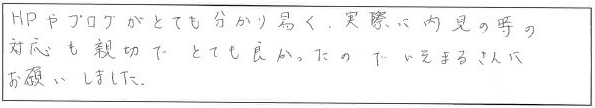 HPやブログがとても分かり易く、実際に内見の時の
対応も親切でとても良かったのでいえまるさんに
お願いしました。